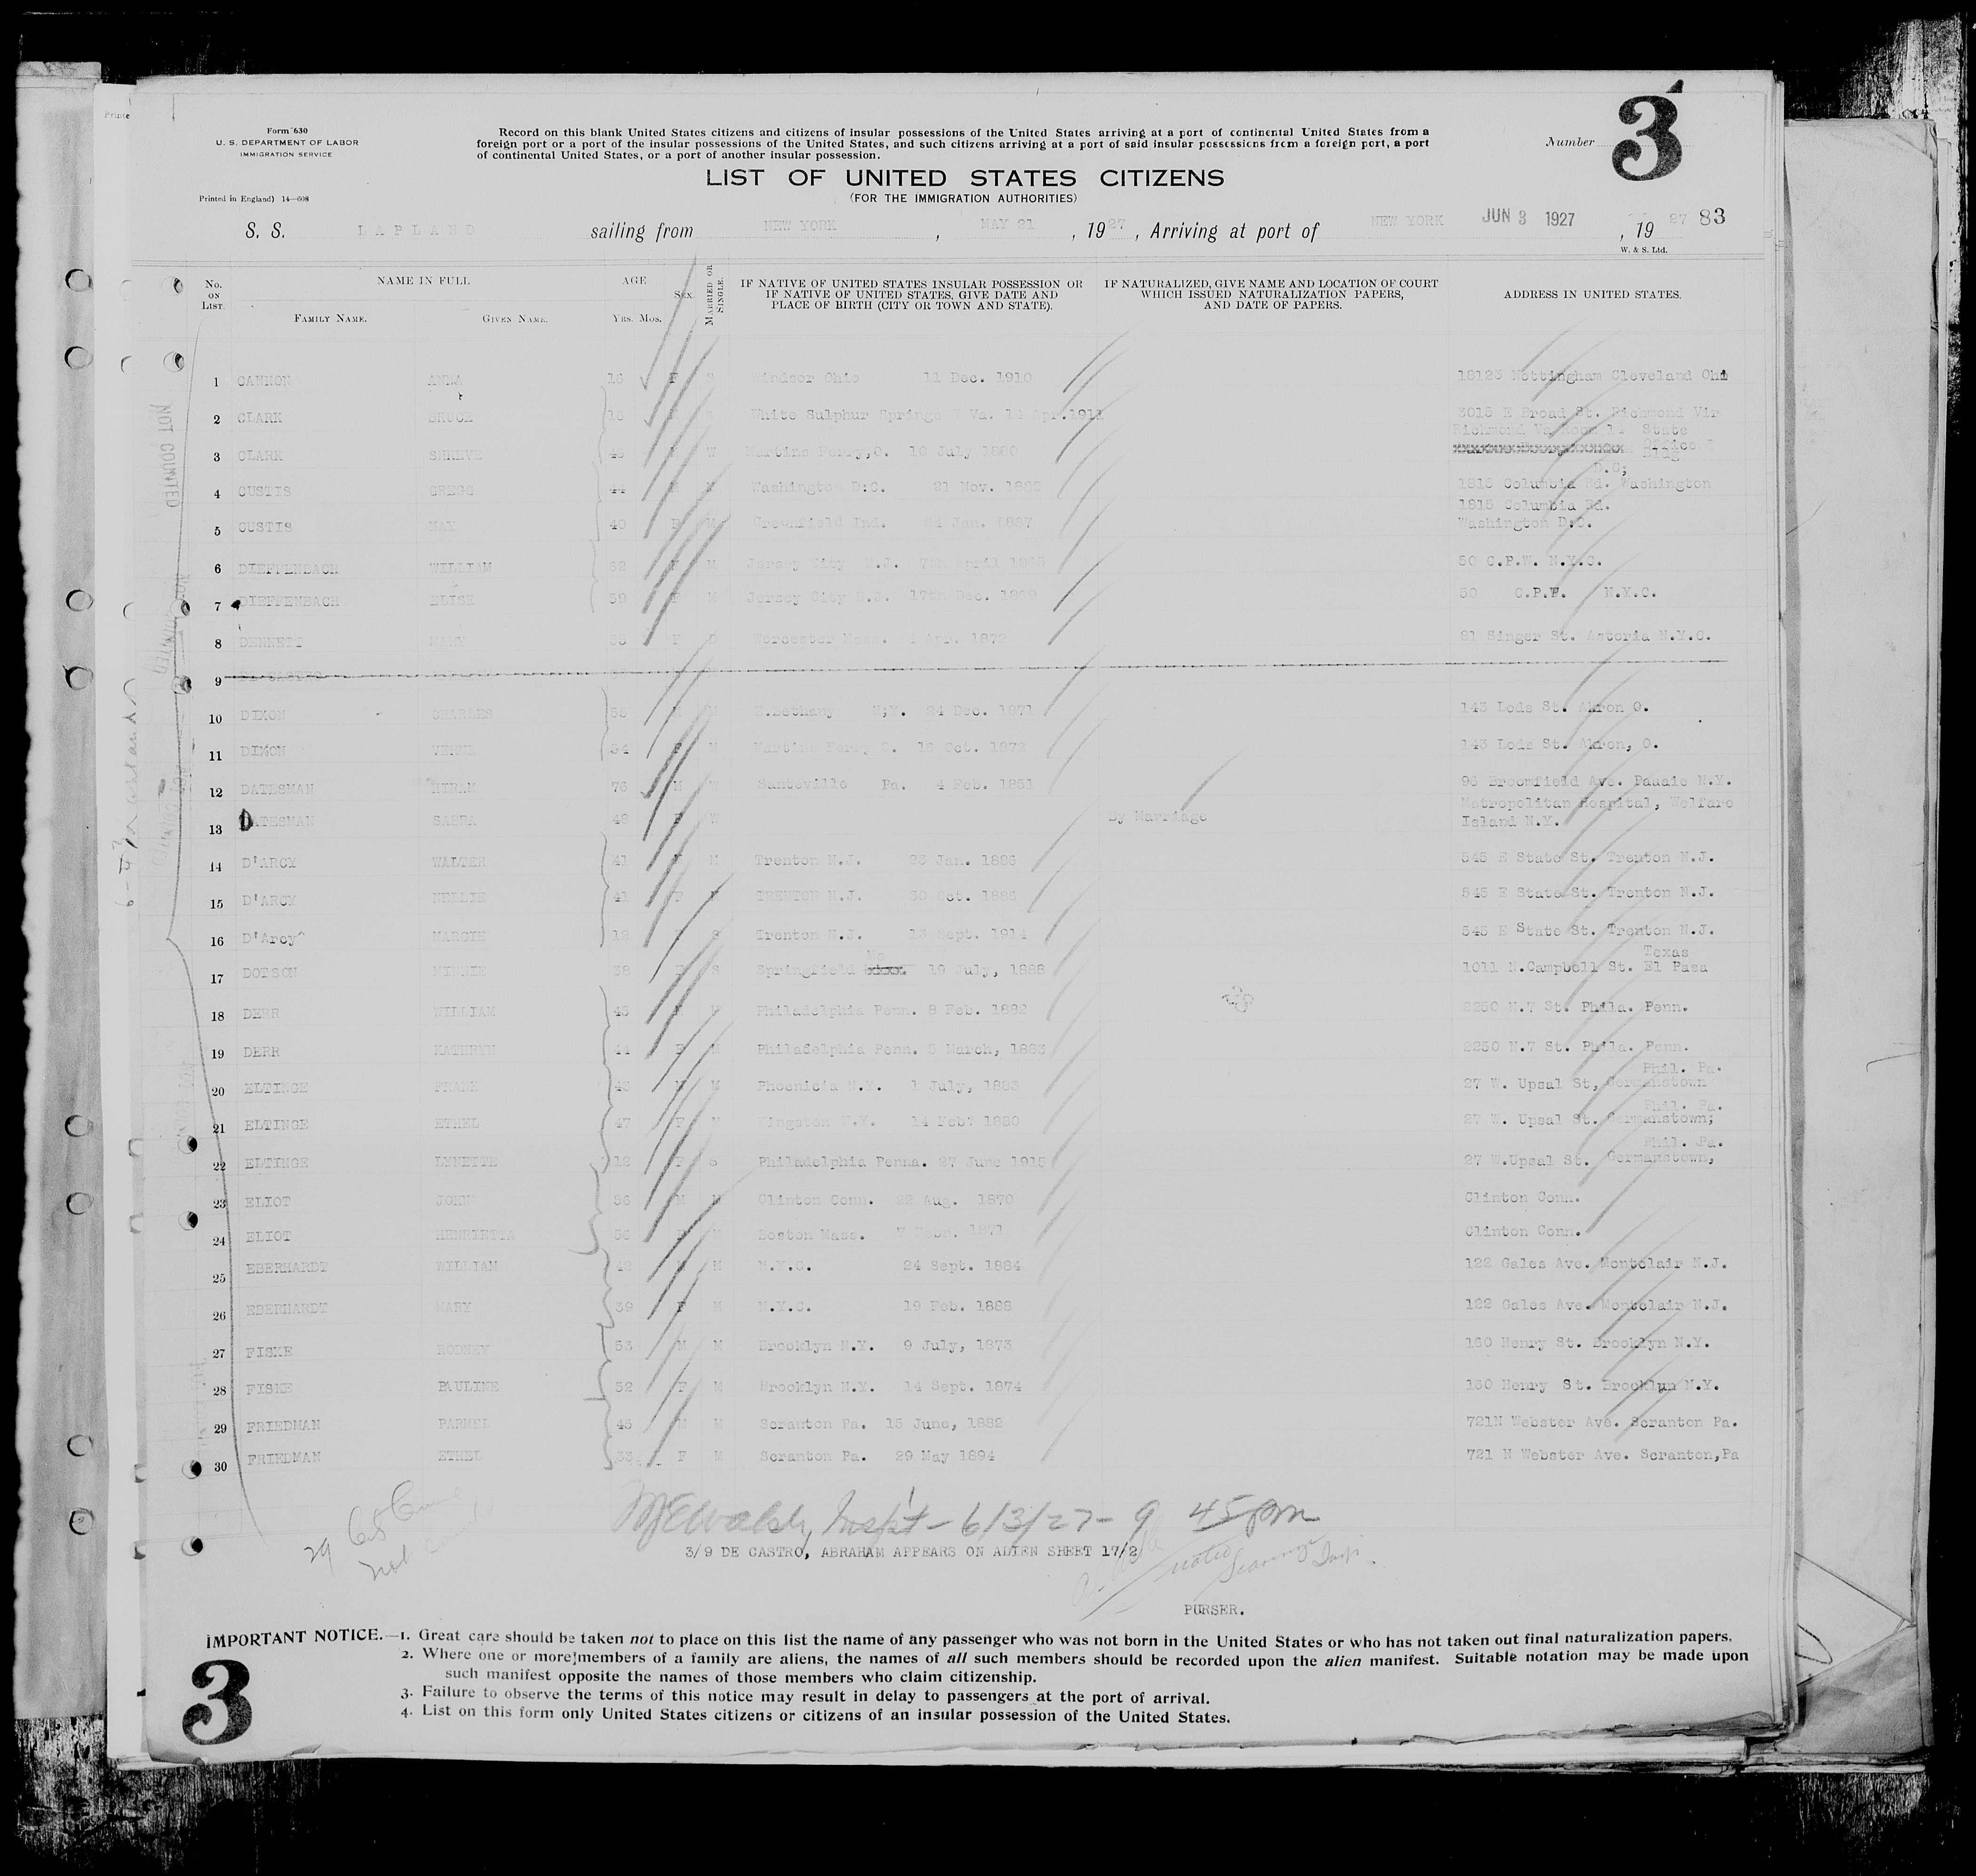 Form 630
U. S. DEPARTMENT OF LABOR
IMMIGRATION SERVICE
Printed in England) 14—608
Record on this blank United States citizens and citizens of insular possessions of the United States arriving at a port of continental United States from a
foreign port or a port of the insular possessions of the United States, and such citizens arriving at a port of said insular possessions from a foreign port, a port
of continental United States, or a port of another insular possession.
Number 3
LIST OF UNITED STATES CITIZENS
(FOR THE IMMIGRATION AUTHORITIES)
S. S. LAPLAND sailing from NEW YORK, MAY 21, 1927, Arriving at port of NEW YORK JUN 3 1927, 1927 83
W. & S. Ltd.
No. ON LIST. NAME IN FULL FAMILY NAME. GIVEN NAME. AGE YRS. MOS. SEX. MARRIED OR SINGLE. IF NATIVE OF UNITED STATES INSULAR POSSESSION OR IF NATIVE OF UNITED STATES, GIVE DATE AND PLACE OF BIRTH (CITY OR TOWN AND STATE). IF NATURALIZED, GIVE NAME AND LOCATION OF COURT WHICH ISSUED NATURALIZATION PAPERS, AND DATE OF PAPERS. ADDRESS IN UNITED STATES.
1 CANNON ANNA 16 F S Windsor Ohio 11 Dec. 1910 18123 Nottingham Cleveland Ohi
2 CLARK 16 White Sulphur Springs Va. 14 Apr. 1911 3015 E Broad St. Richmond Vir
3 CLARK SHREVE W Martins Ferry, O. 10 July 1880 Richmond Va Room 14 State Office Bldg
4 CUSTIS GREGG 44 M Washington D:C. 21 Nov. 1882 1815 Columbia Rd. Washington D.C;
5 CUSTIS MAY 40 F M Greenfield Ind. 24 Jan. 1887 1815 Columbia Rd. Washington D:C.
6 DIEFFENBACH WILLIAM 62 M Jersey City N.J. 7th April 1865 50 C.P.W. N.Y.C.
7 DIEFFENBACH ELISE 59 F M Jersey City N.J. 17th Dec. 50 C.P.W. N.Y.C.
8 MARY F Worcester Mass. Apr. 1872 81 Singer St. Astoria N.Y.C.
9 DE CASTRO
10 DIXON CHARLES 55 M M E.Bethany N;Y. 24 Dec. 1871 143 Lods St. Akron O.
11 DIXON 54 F M Martins Ferry O. 16 Oct. 1872 143 Lods St. Akron, O.
12 DATESMAN HIRAM 76 M W Santeville Pa. 4 Feb. 1851 96 Broomfield Ave. N.Y.
13 DATESMAN 48 F W By Marriage Metropolitan Hospital, Welfare Island N.Y.
14 D'ARCY WALTER 41 M M Trenton N.J. 23 Jan. 1886 545 E State St. Trenton N.J.
15 D'ARCY NELLIE 41 F TRENTON N.J. 30 Oct. 1885 545 E State St. Trenton N.J.
16 D'Arcy MARGIE 12 F S Trenton N.J. 13 Sept. 1914 545 E State St. Trenton N.J.
17 DOTSON MINNIE 38 F S Springfield Mo 19 July, 1888 1011 N.Campbell St. El Pasa Texas
18 DERR WILLIAM 45 M Philadelphia Penn. 8 Feb. 1882 2250 N.7 St. Phila. Penn.
19 DERR KATHRYN 44 F M Philadelphia Penn. 5 March, 1883 2250 N.7 St. Phila. Penn.
20 ELTINGE FRANK 43 M M Phoenicia N.Y. 1 July, 1883 27 W. Upsal St, Germanstown Phil. Pa.
21 ELTINGE ETHEL 47 F Kingston N.Y. 14 Feb? 1880 27 W. Upsal St. Germanstown; Phil. Pa.
22 ELTINGE LYNETTE 12 F S Philadelphia Penna. 27 June 1915 27 W.Upsal St. Germanstown, Phil. Pa.
23 ELIOT JOHN 56 M M Clinton Conn. 22 Aug. 1870 Clinton Conn.
24 ELIOT HENRIETTA 56 F M Boston Mass. 7 1871 Clinton Conn.
25 EBERHARDT WILLIAM 42 M M N.Y.C. 24 Sept. 1884 122 Gales Ave. Montclair N.J.
26 EBERHARDT MARY 39 F M N.Y.C. 19 Feb. 1888 122 Gales Ave. Montclair N.J.
27 FISKE RODNEY 53 M M Brooklyn N.Y. 9 July, 1873 160 Henry St. Brooklyn N.Y.
28 FISKE PAULINE 52 F M Brooklyn N.Y. 14 Sept. 1874 160 Henry St. Brooklyn N.Y.
29 FRIEDMAN 45 M M Scranton Pa. 15 June, 1882 721N Webster Ave. Scranton Pa.
30 FRIEDMAN ETHEL 33 F M Scranton Pa. 29 May 1894 721 N Webster Ave. Scranton, Pa
NOT COUNTED
Insp't - 6/3/27 - 9 45 pm
3/9 DE CASTRO, ABRAHAM APPEARS ON ALIEN SHEET 17/2
29
noted
Insp.
PURSER.
IMPORTANT NOTICE.—1. Great care should be taken not to place on this list the name of any passenger who was not born in the United States or who has not taken out final naturalization papers.
2. Where one or more members of a family are aliens, the names of all such members should be recorded upon the alien manifest. Suitable notation may be made upon
such manifest opposite the names of those members who claim citizenship.
3. Failure to observe the terms of this notice may result in delay to passengers at the port of arrival.
4. List on this form only United States citizens or citizens of an insular possession of the United States.
3